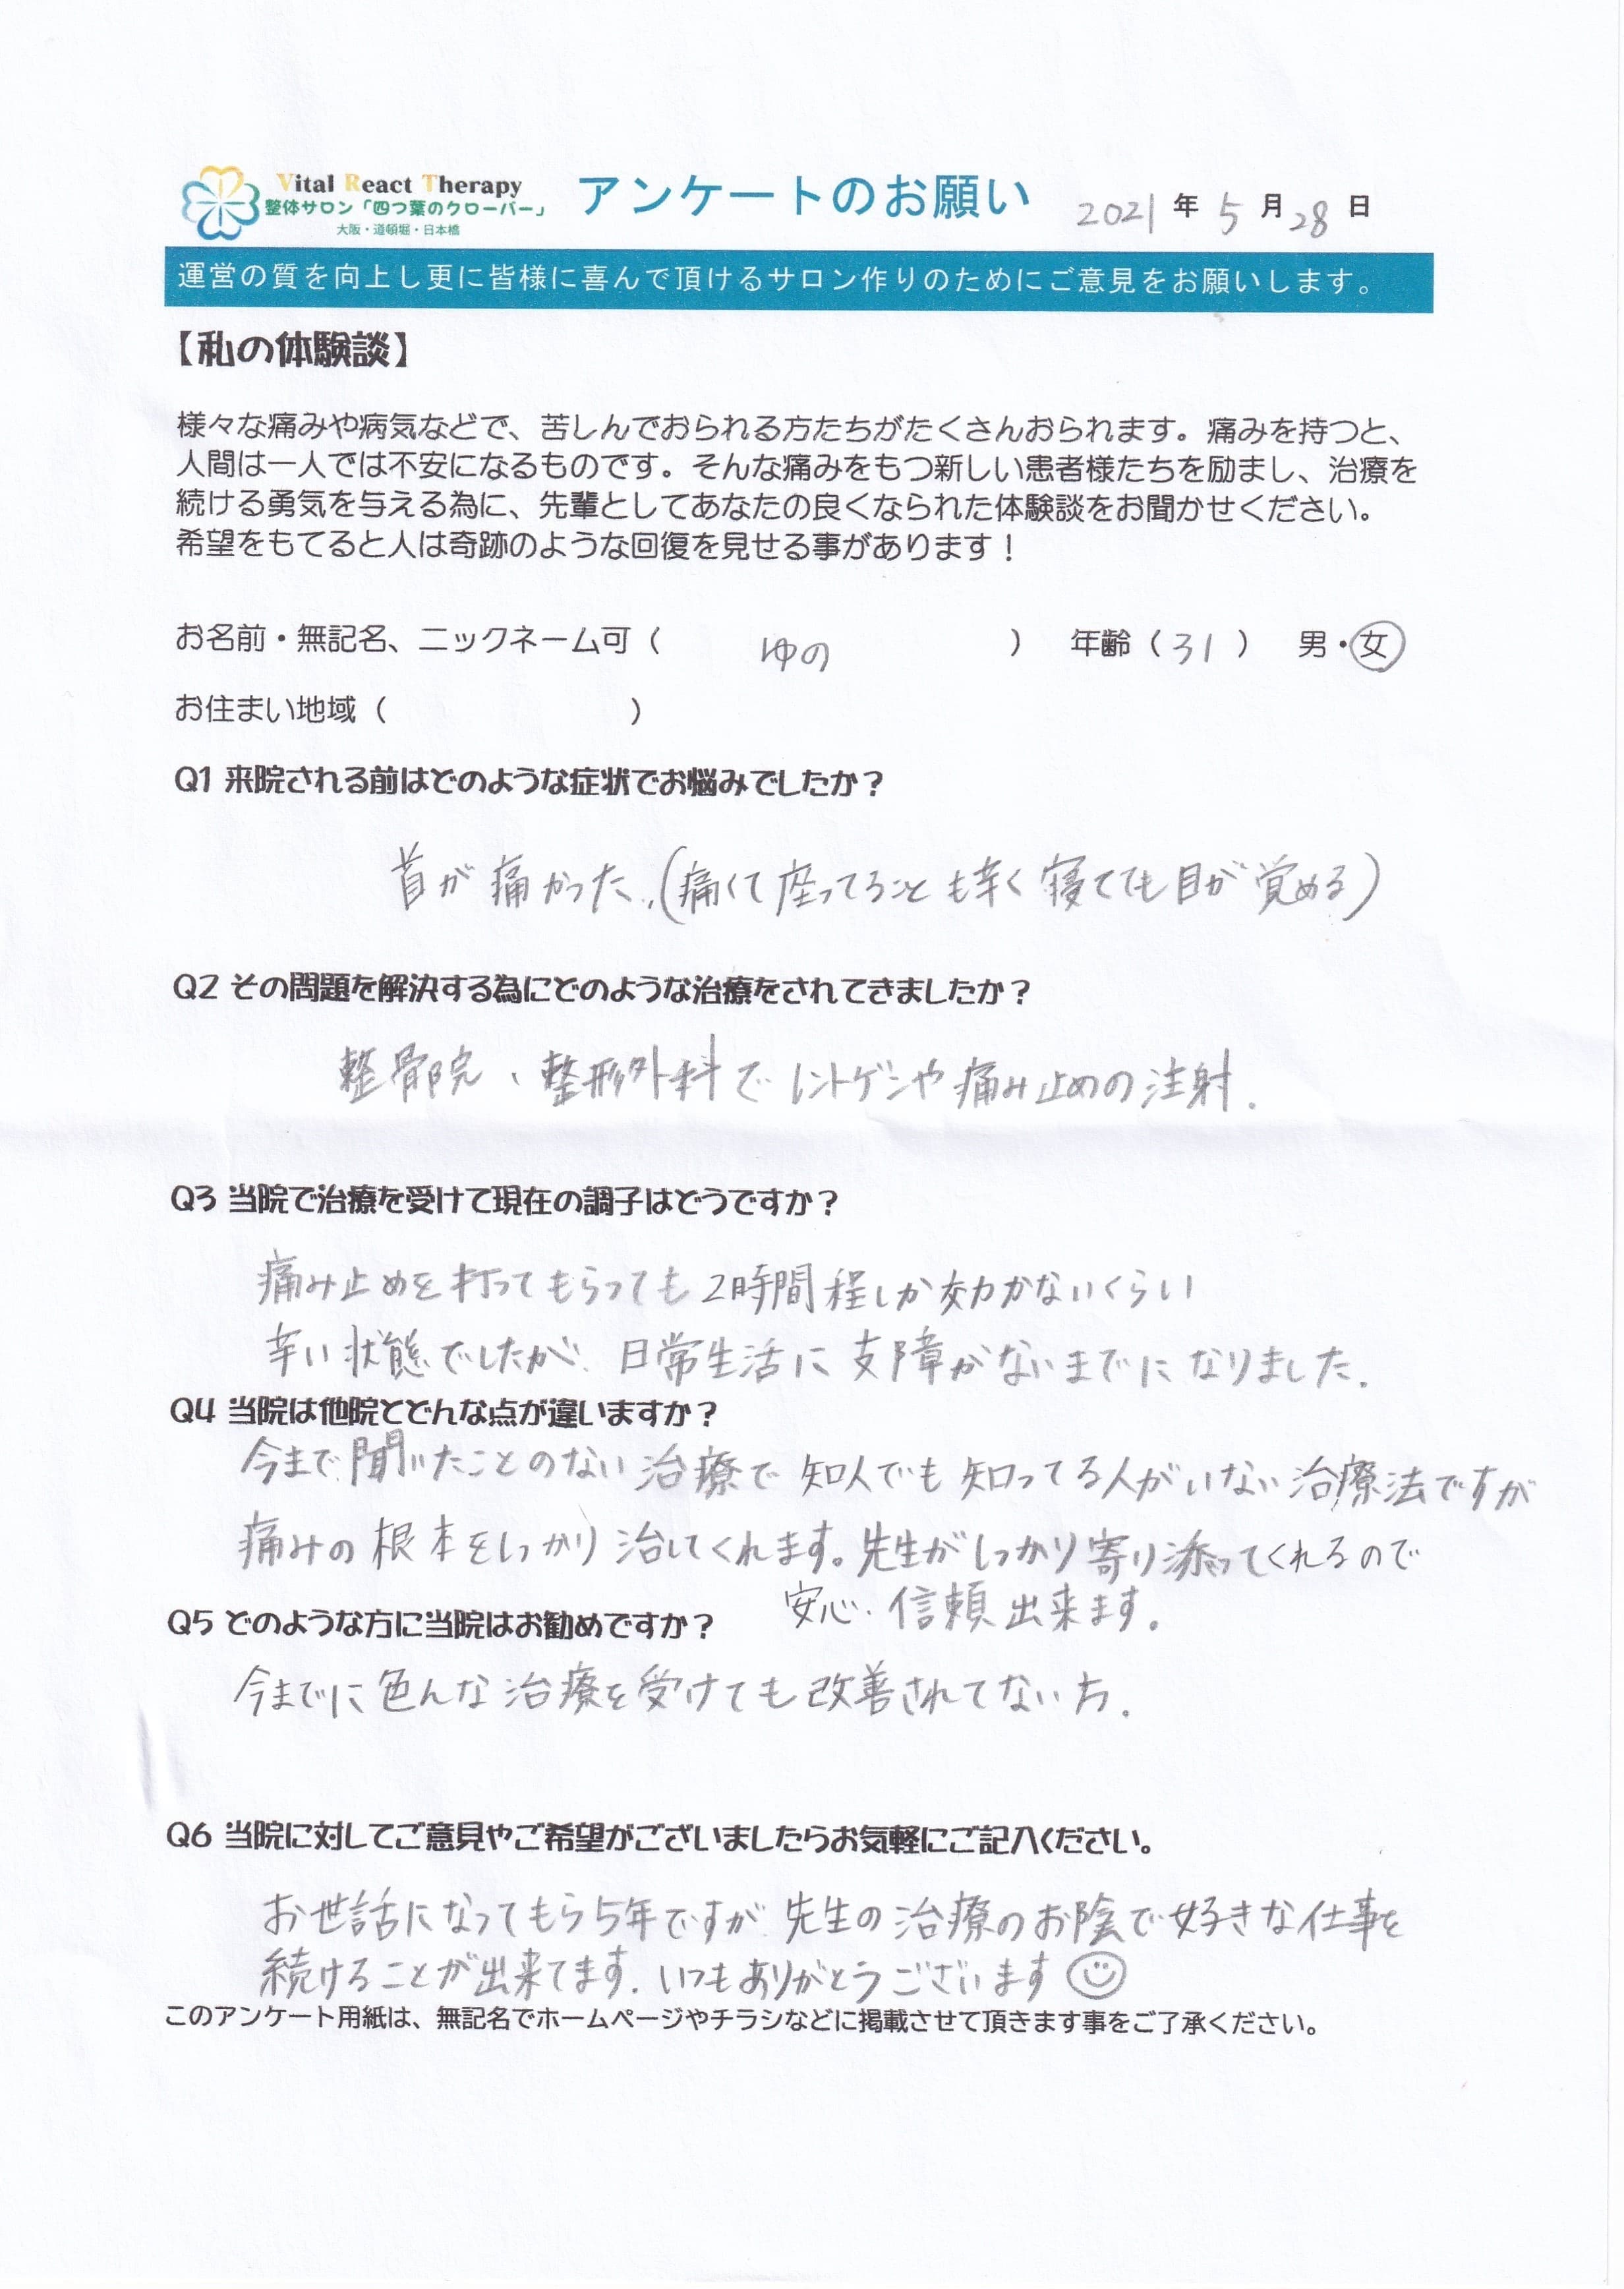 Vital React Therapy
整体サロン「四つ葉のクローバー」
大阪・道頓堀・日本橋
アンケートのお願い
2021年5月28日
運営の質を向上し更に皆様に喜んで頂けるサロン作りのためにご意見をお願いします。
【私の体験談】
様々な痛みや病気などで、苦しんでおられる方たちがたくさんおられます。痛みを持つと、
人間は一人では不安になるものです。そんな痛みをもつ新しい患者様たちを励まし、治療を
続ける勇気を与える為に、先輩としてあなたの良くなられた体験談をお聞かせください。
希望をもてると人は奇跡のような回復を見せる事があります！
お名前・無記名、ニックネーム可（ ゆの ） 年齢（31） 男・女
お住まい地域（ ）
Q1 来院される前はどのような症状でお悩みでしたか？
首が痛かった。(痛くて座ってることも辛く寝てても目が覚める)
Q2 その問題を解決する為にどのような治療をされてきましたか？
整骨院、整形外科でレントゲンや痛み止めの注射.
Q3 当院で治療を受けて現在の調子はどうですか？
痛み止めを打ってもらっても2時間程しか効かないくらい
辛い状態でしたが、日常生活に支障がないまでになりました.
Q4 当院は他院とどんな点が違いますか？
今まで聞いたことのない治療で知人でも知ってる人がいない治療法ですが
痛みの根本をしっかり治してくれます。先生がしっかり寄り添ってくれるので
安心・信頼出来ます.
Q5 どのような方に当院はお勧めですか？
今までに色んな治療を受けても改善されてない方.
Q6 当院に対してご意見やご希望がございましたらお気軽にご記入ください。
お世話になってもう5年ですが先生の治療のお陰で好きな仕事を
続けることが出来てます.いつもありがとうございます☺
このアンケート用紙は、無記名でホームページやチラシなどに掲載させて頂きます事をご了承ください。